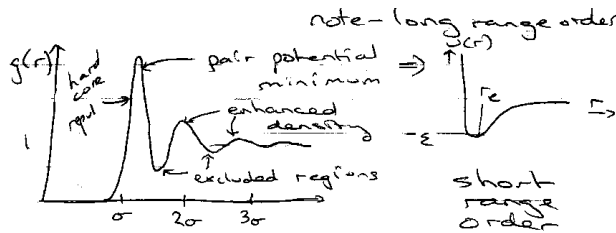 note - long range order
g(r)
hard
core
repul
pair potential
minimum
⇒
u(r)
re
r
-ε
enhanced
density
1
excluded regions
σ 2σ 3σ
short
range
order